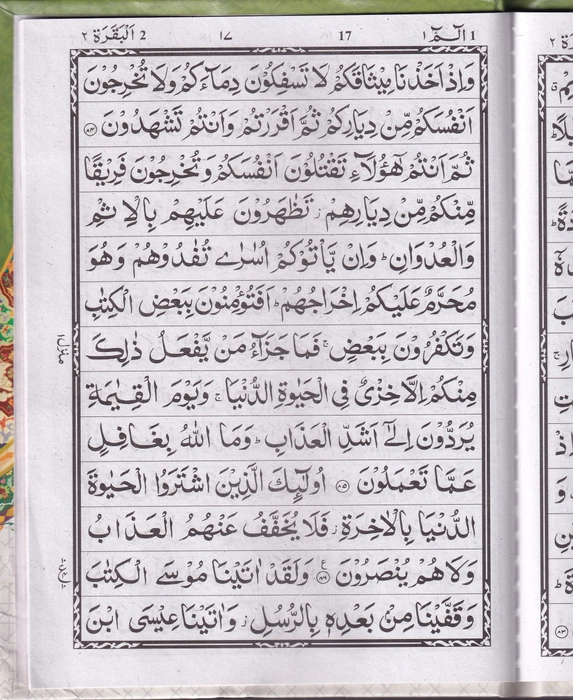 الٓـمّٓ ١ 1 17 ١٧ 2 اَلْبَقَرَة ٢
وَاِذْ اَخَذْنَا مِيْثَاقَكُمْ لَا تَسْفِكُوْنَ دِمَآءَكُمْ وَلَا تُخْرِجُوْنَ
اَنْفُسَكُمْ مِّنْ دِيَارِكُمْ ثُمَّ اَقْرَرْتُمْ وَاَنْتُمْ تَشْهَدُوْنَ ﴿۸۴﴾
ثُمَّ اَنْتُمْ هٰٓؤُلَآءِ تَقْتُلُوْنَ اَنْفُسَكُمْ وَتُخْرِجُوْنَ فَرِيْقًا
مِّنْكُمْ مِّنْ دِيَارِهِمْ ز تَظٰهَرُوْنَ عَلَيْهِمْ بِالْاِثْمِ
وَالْعُدْوَانِ ط وَاِنْ يَّاْتُوْكُمْ اُسٰرٰى تُفٰدُوْهُمْ وَهُوَ
مُحَرَّمٌ عَلَيْكُمْ اِخْرَاجُهُمْ ط اَفَتُؤْمِنُوْنَ بِبَعْضِ الْكِتٰبِ
وَتَكْفُرُوْنَ بِبَعْضٍ ج فَمَا جَزَآءُ مَنْ يَّفْعَلُ ذٰلِكَ
مِنْكُمْ اِلَّا خِزْىٌ فِى الْحَيٰوةِ الدُّنْيَا ج وَيَوْمَ الْقِيٰمَةِ
يُرَدُّوْنَ اِلٰٓى اَشَدِّ الْعَذَابِ ط وَمَا اللّٰهُ بِغَافِلٍ
عَمَّا تَعْمَلُوْنَ ﴿۸۵﴾ اُولٰٓئِكَ الَّذِيْنَ اشْتَرَوُا الْحَيٰوةَ
الدُّنْيَا بِالْاٰخِرَةِ ز فَلَا يُخَفَّفُ عَنْهُمُ الْعَذَابُ
وَلَا هُمْ يُنْصَرُوْنَ ﴿۸۶﴾ ع وَلَقَدْ اٰتَيْنَا مُوْسَى الْكِتٰبَ
وَقَفَّيْنَا مِنْ بَعْدِهٖ بِالرُّسُلِ ز وَاٰتَيْنَا عِيْسَى ابْنَ
منزل ١